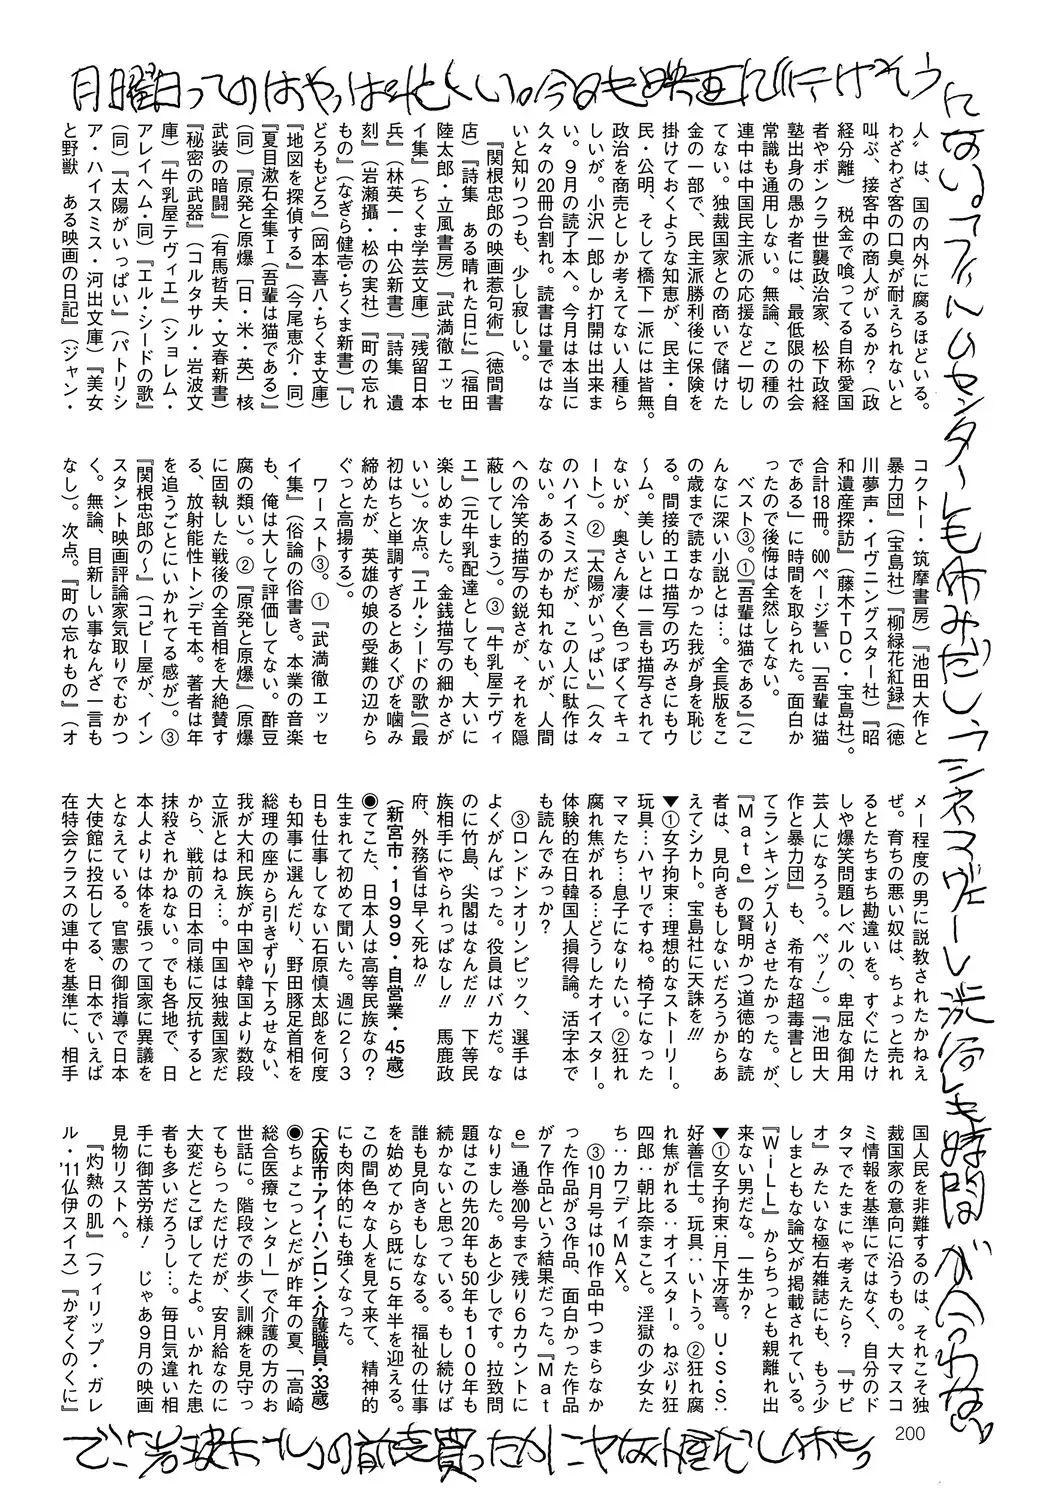 月曜日ってのはやっぱ忙しい。今日も映画に行けそう
にない。フィルムセンターも休みだし、シネマヴェーラ渋谷も時間が合わない。
人〟は、国の内外に腐るほどいる。
わざわざ客の口臭が耐えられないと
叫ぶ、接客中の商人がいるか?(政
経分離) 税金で喰ってる自称愛国
者やボンクラ世襲政治家、松下政経
塾出身の愚か者には、最低限の社会
常識も通用しない。無論、この種の
連中は中国民主派の応援など一切し
てない。独裁国家との商いで儲けた
金の一部で、民主派勝利後に保険を
掛けておくような知恵が、民主・自
民・公明、そして橋下一派には皆無。
政治を商売としか考えてない人種ら
しいが。小沢一郎しか打開は出来ま
い。9月の読了本へ。今月は本当に
久々の20冊台割れ。読書は量ではな
いと知りつつも、少し寂しい。
『関根忠郎の映画惹句術』(徳間書
店)『詩集 ある晴れた日に』(福田
陸太郎・立風書房)『武満徹エッセ
イ集』(ちくま学芸文庫)『残留日本
兵』(林英一・中公新書)『詩集 遺
刻』(岩瀬攝・松の実社)『町の忘れ
もの』(なぎら健壱・ちくま新書)『し
どろもどろ』(岡本喜八・ちくま文庫)
『地図を探偵する』(今尾恵介・同)
『夏目漱石全集Ⅰ(吾輩は猫である)』
(同)『原発と原爆[日・米・英]核
武装の暗闘』(有馬哲夫・文春新書)
『秘密の武器』(コルタサル・岩波文
庫)『牛乳屋テヴィエ』(ショレム・
アレイヘム・同)『エル・シードの歌』
(同)『太陽がいっぱい』(パトリシ
ア・ハイスミス・河出文庫)『美女
と野獣 ある映画の日記』(ジャン・
コクトー・筑摩書房)『池田大作と
暴力団』(宝島社)『柳緑花紅録』(徳
川夢声・イヴニングスター社)『昭
和遺産探訪』(藤木TDC・宝島社)。
合計18冊。600ページ誓い「吾輩は猫
である」に時間を取られた。面白か
ったので後悔は全然してない。
ベスト③。①『吾輩は猫である』(こ
んなに深い小説とは…。全長版をこ
の歳まで読まなかった我が身を恥じ
る。間接的エロ描写の巧みさにもウ
〜ム。美しいとは一言も描写されて
ないが、奥さん凄く色っぽくてキュ
ート)。②『太陽がいっぱい』(久々
のハイスミスだが、この人に駄作は
ない。あるのかも知れないが、人間
への冷笑的描写の鋭さが、それを隠
蔽してしまう)。③『牛乳屋テヴィ
エ』(元牛乳配達としても、大いに
楽しめました。金銭描写の細かさが
いい)。次点。『エル・シードの歌』(最
初はちと単調すぎるとあくびを噛み
締めたが、英雄の娘の受難の辺から
ぐっと高揚する)。
ワースト③。①『武満徹エッセ
イ集』(俗論の俗書き。本業の音楽
も、俺は大して評価してない。酢豆
腐の類い)。②『原発と原爆』(原爆
に固執した戦後の全首相を大絶賛す
る、放射能性トンデモ本。著者は年
を追うごとにいかれてる感が)。③
『関根忠郎の〜』(コピー屋が、イン
スタント映画評論家気取りでむかつ
く。無論、目新しい事なんざ一言も
なし)。次点。『町の忘れもの』(オ
メー程度の男に説教されたかねえ
ぜ。育ちの悪い奴は、ちょっと売れ
るとたちまち勘違いを。すぐにたけ
しや爆笑問題レベルの、卑屈な御用
芸人になろう。ペッ!)。『池田大
作と暴力団』も、希有な超毒書とし
てランキング入りさせたかった。が、
『Mate』の賢明かつ道徳的な読
者は、見向きもしないだろうからあ
えてシカト。宝島社に天誅を!!!
▼①女子拘束…理想的なストーリー。
玩具…ハヤリですね。椅子になった
ママたち…息子になりたい。②狂れ
腐れ焦がれる…どうしたオイスター。
体験的在日韓国人損得論。活字本で
も読んでみっか?
③ロンドンオリンピック、選手は
よくがんばった。役員はバカだ。な
のに竹島、尖閣はなんだ!! 下等民
族相手にやられっぱなし!! 馬鹿政
府、外務省は早く死ね!!
(新宮市・1999・自営業・45歳)
◉てこた、日本人は高等民族なの?
生まれて初めて聞いた。週に2〜3
日も仕事してない石原慎太郎を何度
も知事に選んだり、野田豚足首相を
総理の座から引きずり下ろせない、
我が大和民族が中国や韓国より数段
立派とはねえ…。中国は独裁国家だ
から、戦前の日本同様に反抗すると
抹殺されかねない。でも各地で、日
本人よりは体を張って国家に異議を
となえている。官憲の御指導で日本
大使館に投石してる、日本でいえば
在特会クラスの連中を基準に、相手
国人民を非難するのは、それこそ独
裁国家の意向に沿うもの。大マスコ
ミ情報を基準にではなく、自分のド
タマでたまにゃ考えたら? 『サピ
オ』みたいな極右雑誌にも、もう少
しまともな論文が掲載されている。
『WiLL』からちっとも親離れ出
来ない男だな。一生か?
▼①女子拘束‥月下冴喜。U・S・S‥
好善信士。玩具‥いトう。②狂れ腐
れ焦がれる‥オイスター。ねぶり狂
四郎‥朝比奈まこと。淫獄の少女た
ち‥カワディMAX。
③10月号は10作品中つまらなか
った作品が3作品、面白かった作品
が7作品という結果だった。『Mat
e』通巻200号まで残り6カウントに
なりました。あと少しです。拉致問
題はこの先20年も50年も100年も
続かないと思っている。もし続けば
誰も見向きもしなくなる。福祉の仕事
を始めてから既に5年半を迎える。
この間色々な人を見て来て、精神的
にも肉体的にも強くなった。
(大阪市・アイ・ハンロン・介護職員・33歳)
◉ちょこっとだが昨年の夏、「高崎
総合医療センター」で介護の方のお
世話に。階段での歩く訓練を見守っ
てもらっただけだが、安月給なのに
大変だとこぼしてたよ。いかれた患
者も多いだろうし…。毎日気違い相
手に御苦労様! じゃあ9月の映画
見物リストへ。
『灼熱の肌』(フィリップ・ガレ
ル・'11仏伊スイス)『かぞくのくに』
200